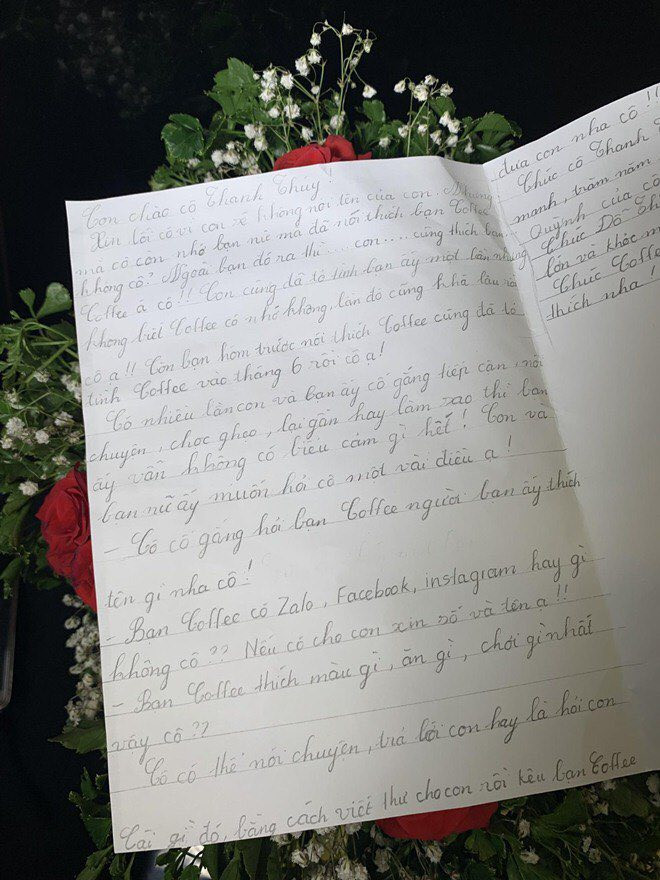 Con chào cô Thanh Thúy!
Xin lỗi cô vì con sẽ không nói tên của con. Nhưng
mà cô còn nhớ bạn nữ mà đã nói thích bạn Coffee
không cô? Ngoài bạn đó ra thì.... con.... cũng thích bạn
Coffee á cô!! Con cũng đã tỏ tình bạn ấy một lần nhưng
không biết Coffee có nhớ không, lần đó cũng khá lâu rồi
cô ạ!! Còn bạn hôm trước nói thích Coffee cũng đã tỏ
tình Coffee vào tháng 6 rồi cô ạ!
Có nhiều lần con và bạn ấy cố gắng tiếp cận, nói
chuyện, chọc ghẹo, lại gần hay làm sao thì bạn
ấy vẫn không có biểu cảm gì hết! Con và
bạn nữ ấy muốn hỏi cô một vài điều ạ!
- Cô cố gắng hỏi bạn Coffee người bạn ấy thích
tên gì nha cô!
- Bạn Coffee có Zalo, Facebook, instagram hay gì
không cô?? Nếu có cho con xin số và tên ạ!!
- Bạn Coffee thích màu gì, ăn gì, chơi gì nhất
vậy cô??
Cô có thể nói chuyện, trả lời con hay là hỏi con
cái gì đó, bằng cách viết thư cho con rồi kêu bạn Coffee
đưa con nha cô!!
Chúc cô Thanh
mạnh, trăm năm
Quỳnh của cô
Chúc Dô
lớn và khóc
Chúc Coffee
thích nha!